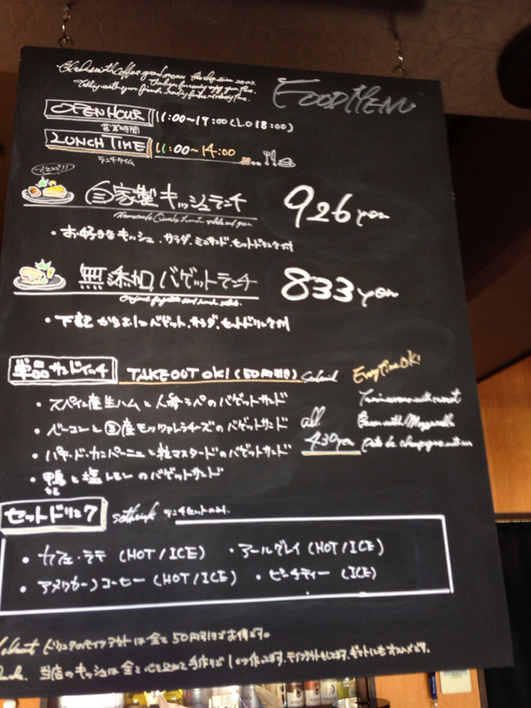 FOOD MENU
OPEN HOUR 11:00〜19:00(L.O 18:00)
営業時間
LUNCH TIME 11:00〜14:00
ランチタイム
自家製キッシュランチ 926yen
・お好きなキッシュ、サラダ、ミニサンド、セットドリンク付
無添加バゲットランチ 833yen
・下記からお1つバゲット、サラダ、セットドリンク付
単品サンドイッチ TAKE OUT OK! (50円引き) Every Time OK!
・スペイン産生ハムと人参ラペのバゲットサンド
・ベーコンと国産モッツァレラチーズのバゲットサンド all
・パテ・ド・カンパーニュと粒マスタードのバゲットサンド 430yen
・鴨と塩レモンのバゲットサンド
かも
セットドリンク set drink ランチセットのみ。
・カフェ・ラテ (HOT/ICE) ・アールグレイ (HOT/ICE)
・アメリカーノコーヒー (HOT/ICE) ・ピーチティー (ICE)
ドリンクのテイクアウトは全て50円引きでお得です。
当店のキッシュは全て心を込めて手作りで1つ1つ作ってます。テイクアウトもできます。ギフトにもオススメです。